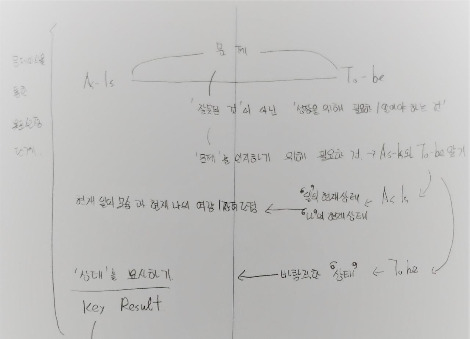 문제
As-Is
To-be
'잘못된 것'이 아닌 '성장을 위해 필요한 / 있어야 하는 것'
'문제'를 인지하기 위해 필요한 것 → As-is와 To-be 알기
현재 일의 모습과 현재 나의 역량 / 장단점 ← "일"의 현재상태 ← As-Is
"나"의 현재상태
'상태'를 묘사하기 ← 바람직한 "상태" ← To be
Key Result